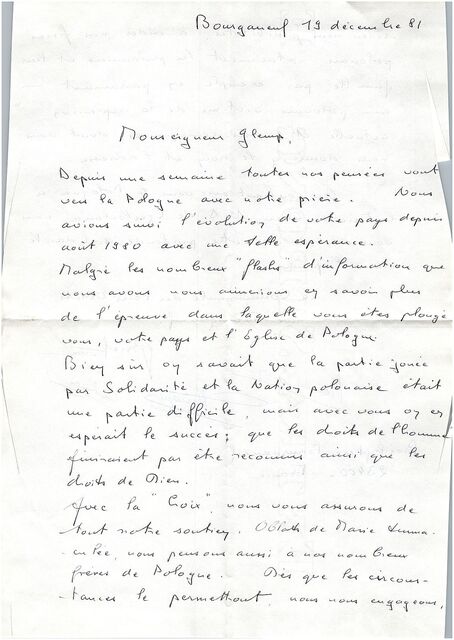 Bourganeuf 19 décembre 81
Monseigneur Glemp,
Depuis une semaine toutes nos pensées vont
vers la Pologne avec notre prière. Nous
avions suivi l'évolution de votre pays depuis
août 1980 avec une telle espérance.
Malgré les nombreux "flashs" d'information que
nous avons nous aimerions en savoir plus
de l'épreuve dans laquelle vous êtes plongé
vous, votre pays et l'Eglise de Pologne.
Bien sûr on savait que la partie jouée
par Solidarité et la Nation polonaise était
une partie difficile, mais avec vous on en
espérait le succès ; que les droits de l'homme
finiraient par être reconnus ainsi que les
droits de Dieu.
Avec la "Croix", nous vous assurons de
tout notre soutien. Oblats de Marie Imma-
-culée, nous pensons aussi à nos nombreux
frères de Pologne. Dès que les circons-
-tances le permettront, nous nous engageons,